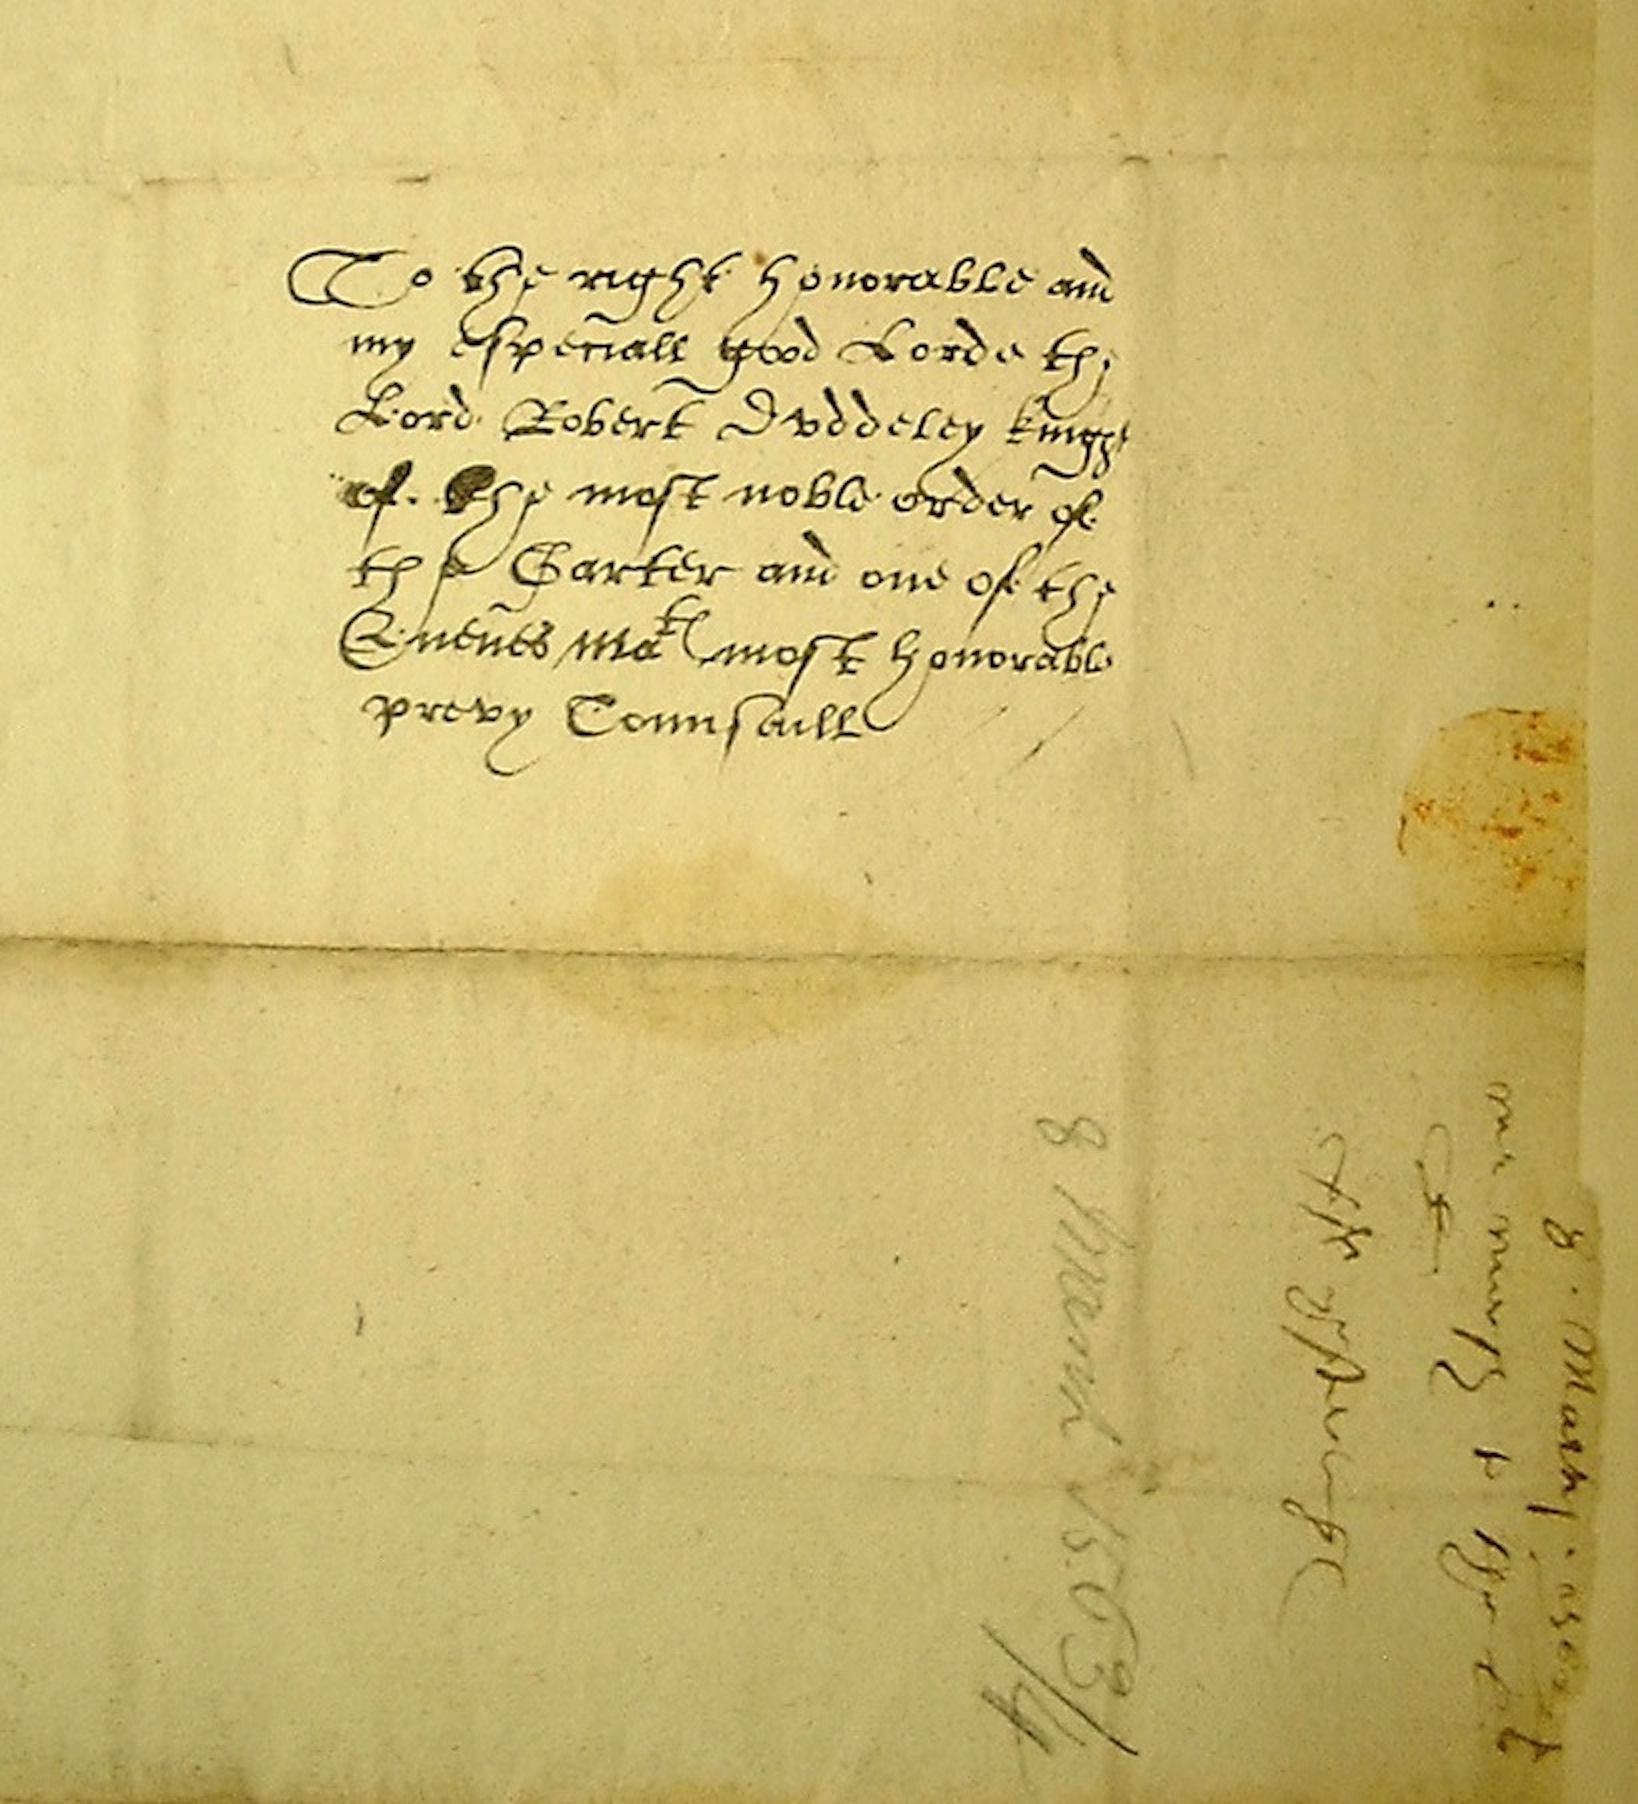 To the right honorable and
my especiall good Lorde the
Lord Robert Duddeley knight
of the most noble order of
the Garter and one of the
Quenes Matꝭ most honorable
prevy Counsaill
8 March 1563/4
8 . March . 1563